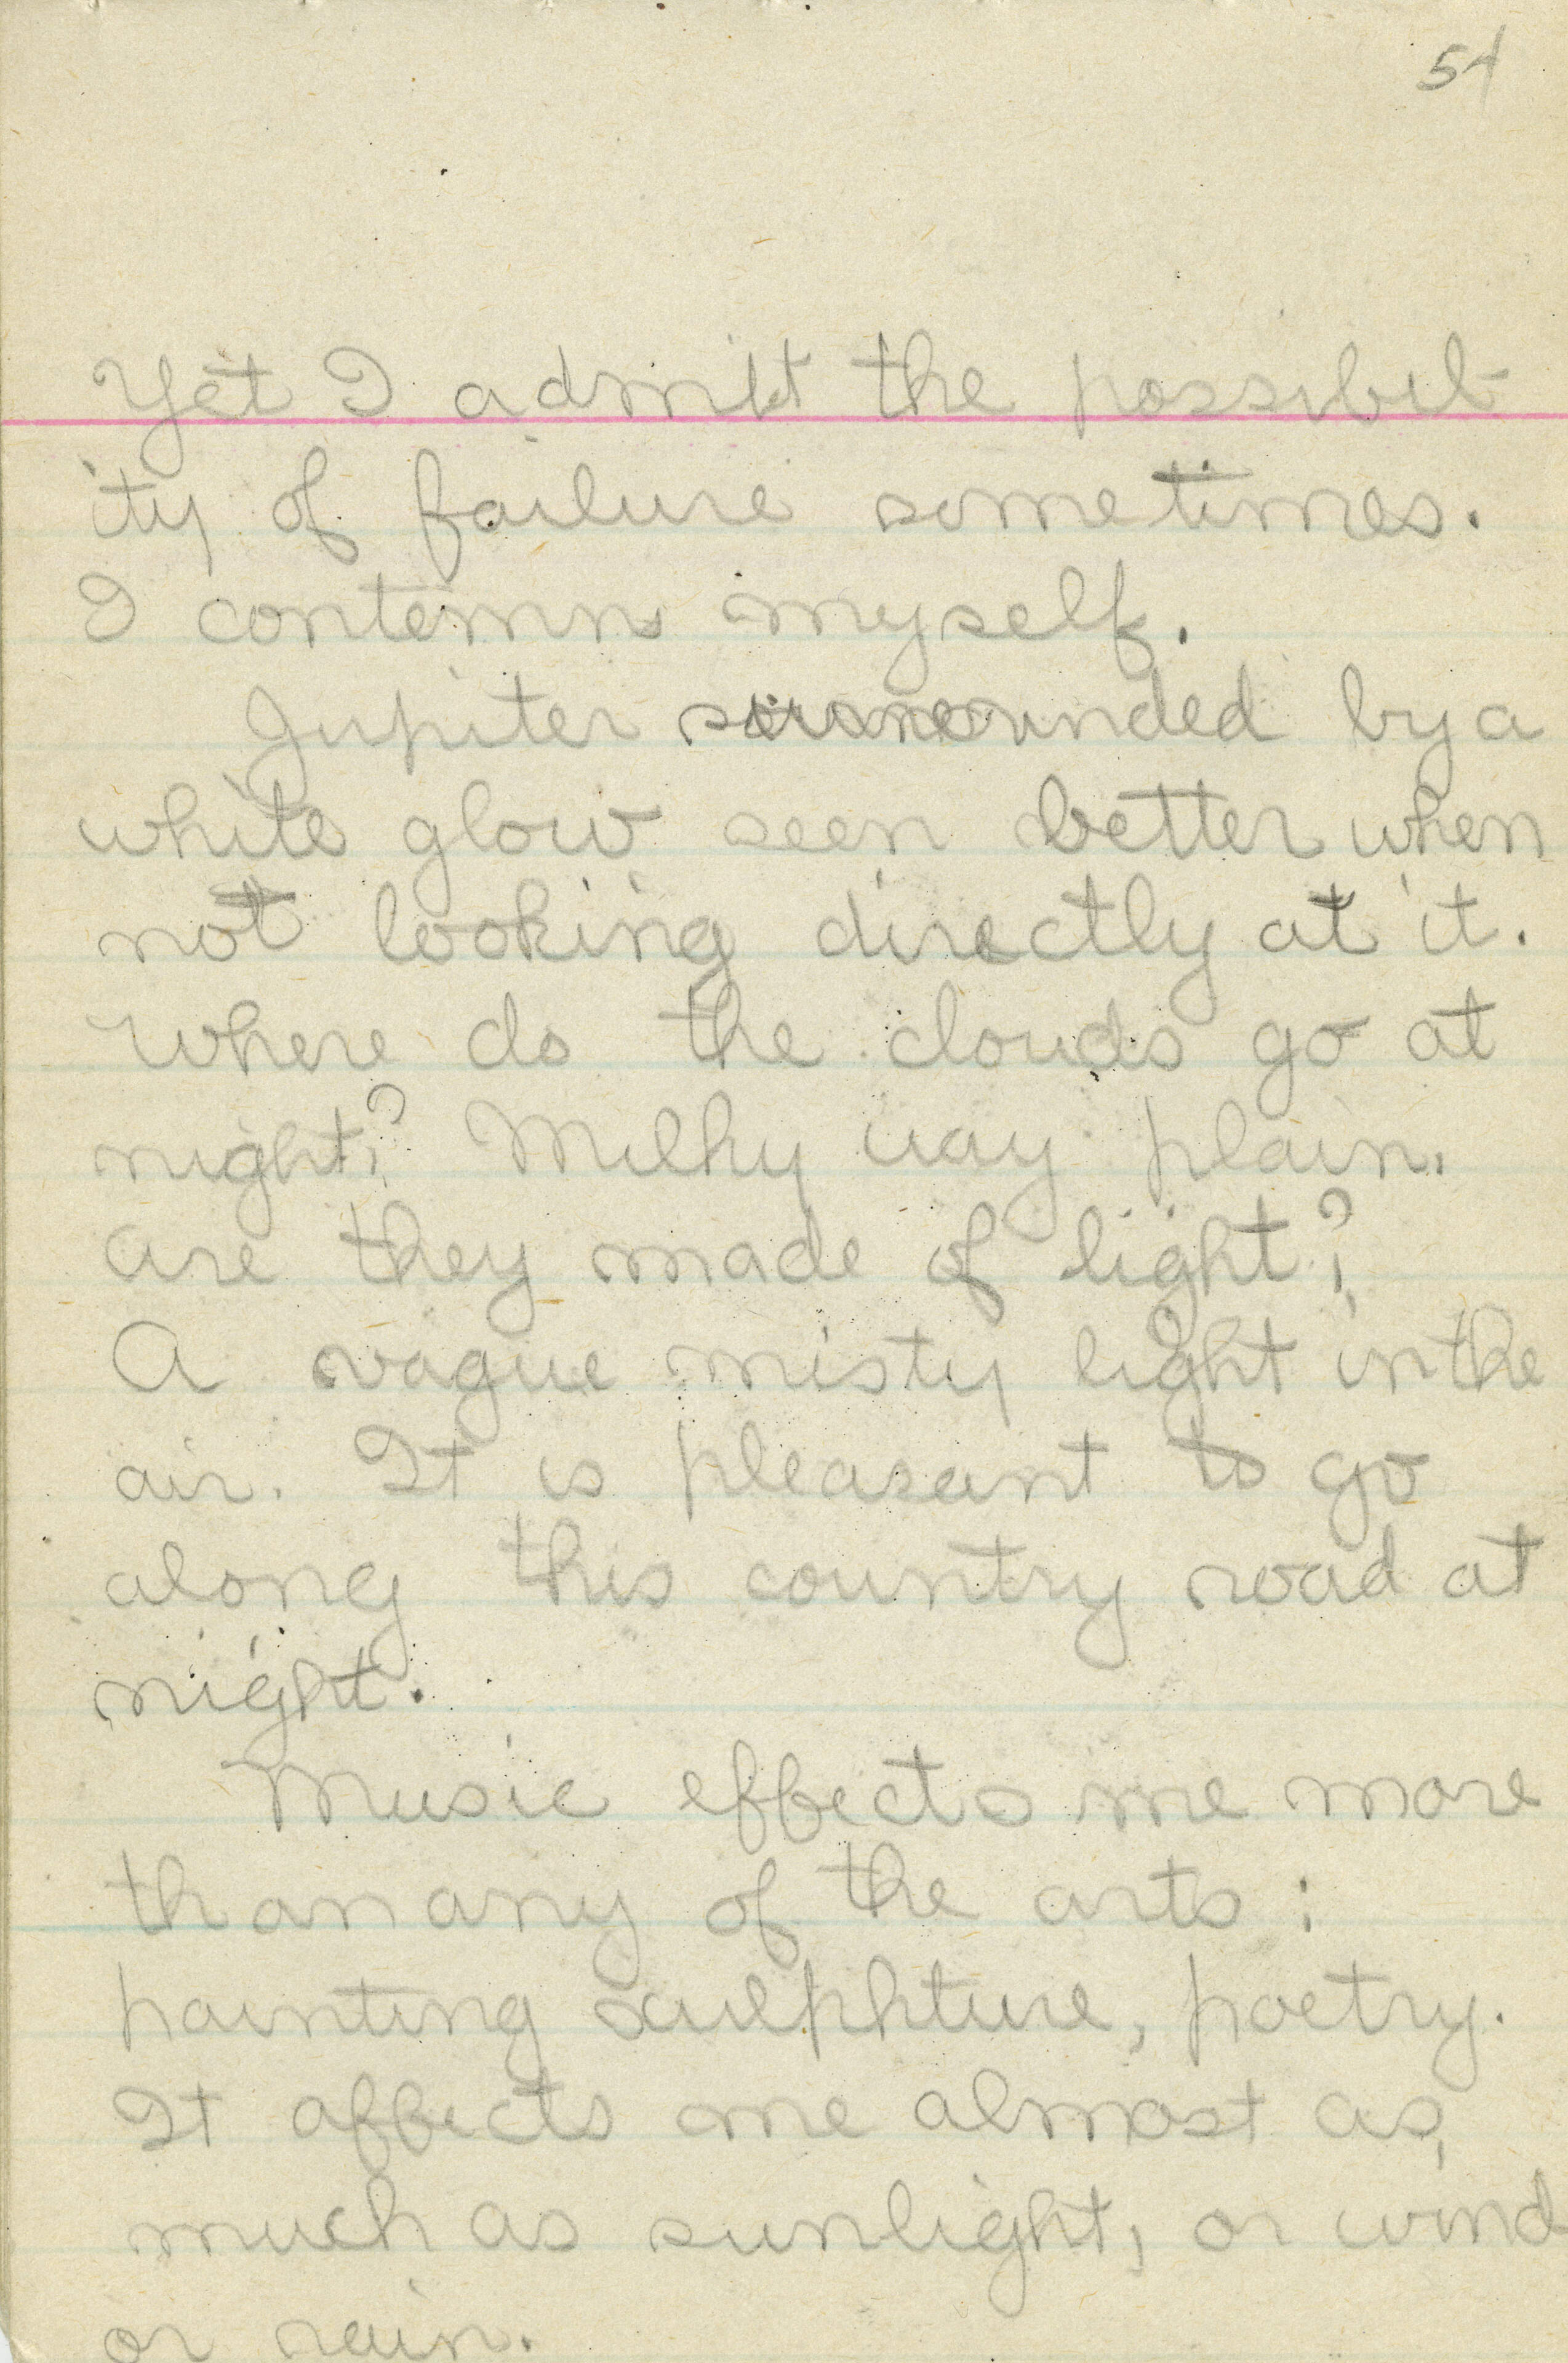 51
Yet I admit the possibil-
ity of failure sometimes.
I contemn myself.
Jupiter surrounded by a
white glow seen better when
not looking directly at it.
Where do the clouds go at
night? Milky way plain.
are they made of light?
A vague misty light in the
air. It is pleasant to go
along this country road at
night.
Music effects me more
than any of the arts:
painting sculphture, poetry.
It affects me almost as,
much as sunlight, or wind
or rain.